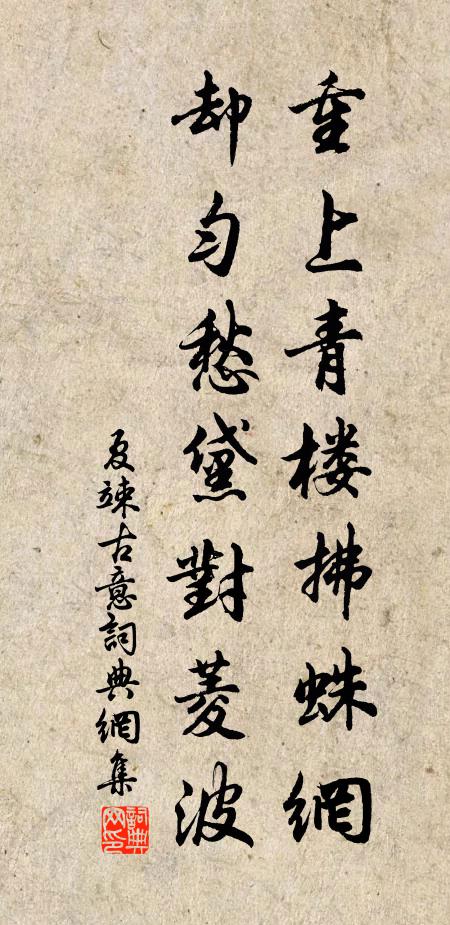 重上青楼拂蛛網
却匀愁黛對菱波
夏竦古意詞典網集
詞典網印